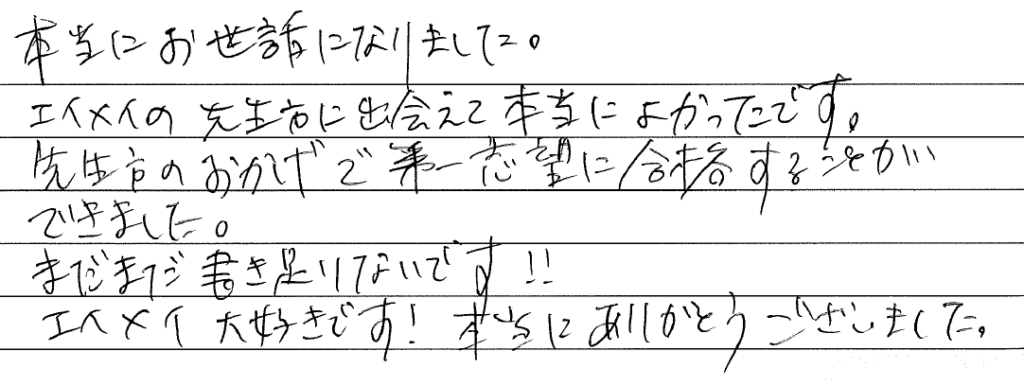 本当にお世話になりました。
エイメイの先生方に出会えて本当によかったです。
先生方のおかげで第一志望に合格することが
できました。
まだまだ書き足りないです!!
エイメイ大好きです!本当にありがとうございました。